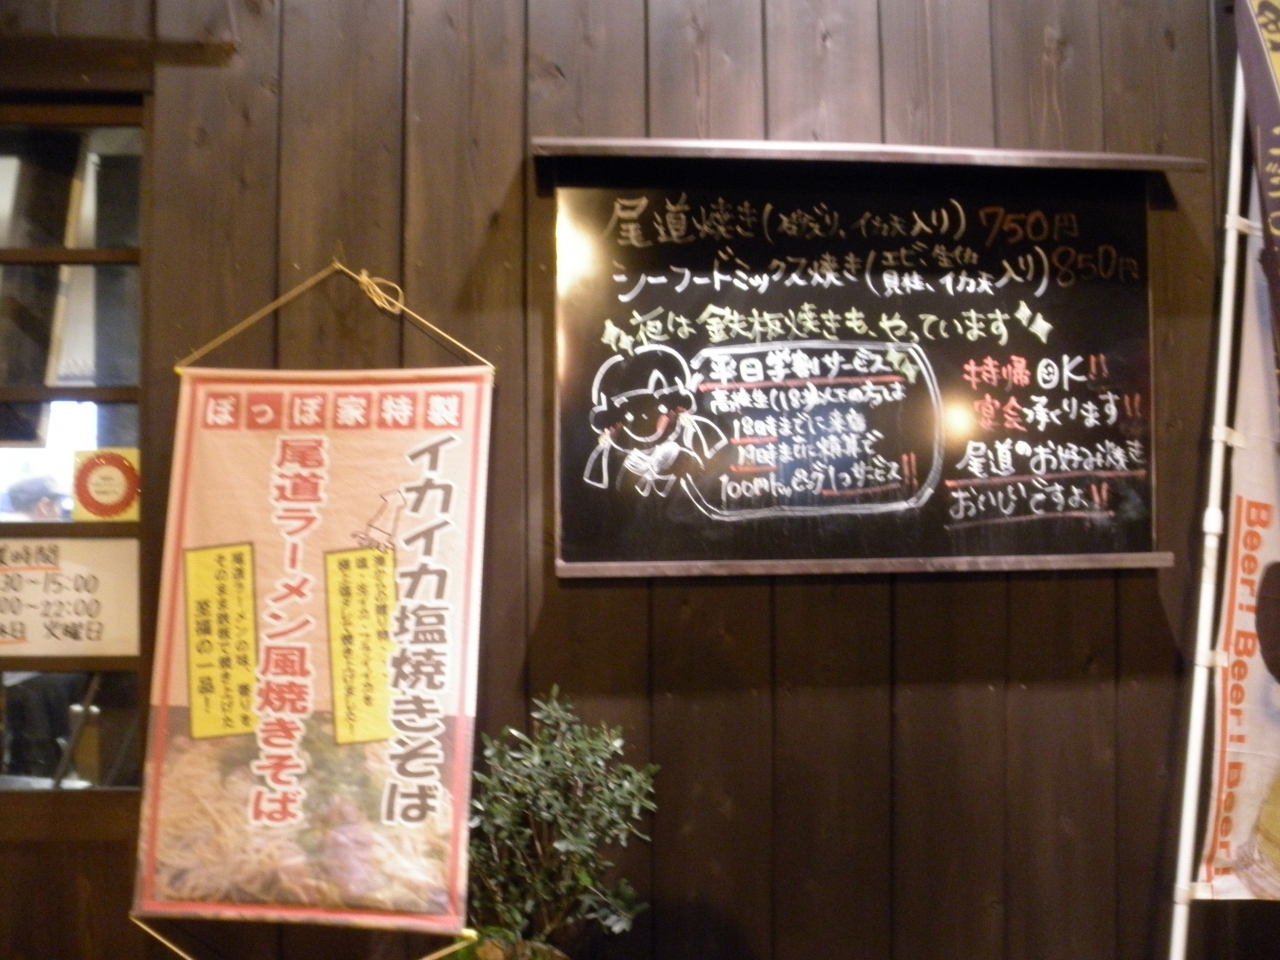 尾道焼き(砂ずり、イカ天入り) 750円
シーフードミックス焼き(エビ、生イカ 貝柱、イカ天入り) 850円
夜は鉄板焼きも、やっています
平日学割サービス
高校生(18歳以下の方)は
18時までに来店
19時までに精算で
100円トッピング1つサービス!!
持帰OK!!
宴会承ります!!
尾道のお好み焼き
おいしいですよ!!
ぽっぽ家特製
イカイカ塩焼きそば
尾道ラーメン風焼きそば
尾道ラーメンの味、香りを
そのまま鉄板で焼き上げた
至福の一品!
時間
30~15:00
00~22:00
休日 火曜日
Beer! Beer! Beer!